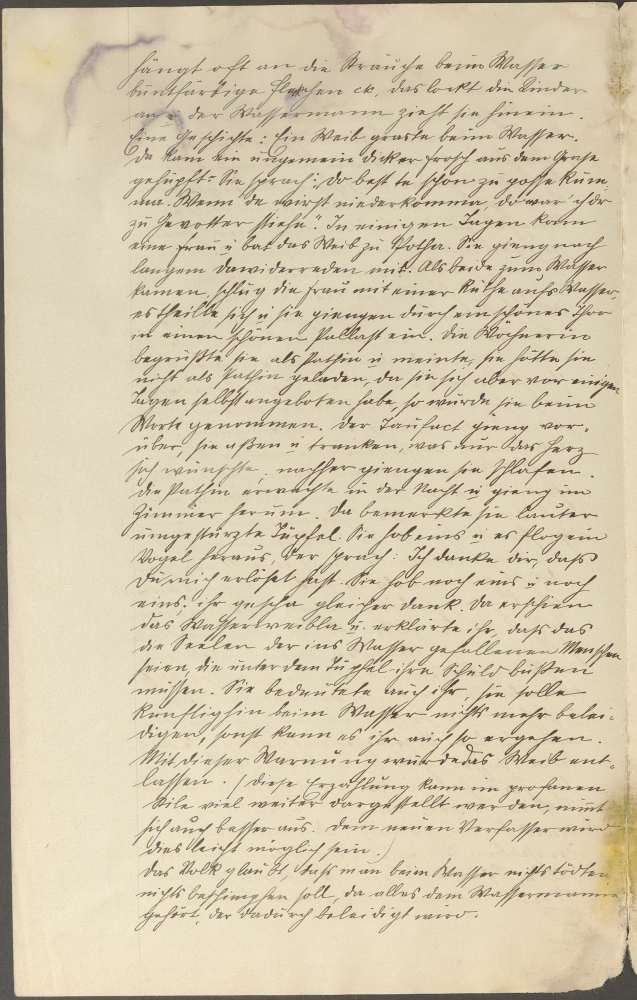 hängt oft an die Sträuche beim Wasser
buntfärbige Fleckchen etc, das lockt die Kinder
an u der Wassermann zieht sie hinein.
Eine Geschichte: Ein Weib graste beim Wasser.
Da kam ein ungemein dicker Frosch aus dem Grase
gehüpft. Sie sprach: „Do best te schon zu posse kum
ma. Wenn de wirst niederkomma, do war' ich dr
zu Gevotter stiehn". In einigen Tagen kam
eine Frau u bat das Weib zu Potha. Sie gieng nach
langem dawiderreden mit. Als beide zum Wasser
kamen, schlug die Frau mit einer Ruthe aufs Wasser,
es theilte sich u sie giengen durch ein schönes Thor
in einen schönen Pallast ein. Die Wöchnerin
begrüßte sie als Pathin u meinte, sie hätte sie
nicht als Pathin geladen, da sie sich aber vor einigen
Tagen selbst angeboten habe, so wurde sie beim
Worte genommen. Der Taufact gieng vor-
über, sie aßen u tranken, was nur das Herz
sich wünschte, nachher giengen sie schlafen.
Die Pathin erwachte in der Nacht u gieng im
Zimmer herum. Da bemerkte sie lauter
umgestürzte Tüpfel. Sie hob eins u es flog ein
Vogel heraus, der sprach: Ich danke dir, dass
Du mich erlöset hast. Sie hob noch eins u noch
eins, ihr gescha gleicher Dank. Da erschien
das Wasserweibla u. erklärte ihr, dass das
die Seelen der ins Wasser gefallenen Menschen
seien, die unter dem Tüpfel ihre Schuld büßen
müssen. Sie bedeutete auch ihr, sie solle
künftighin beim Wasser nichts mehr belei-
digen, sonst kann es ihr auch so ergehen.
Mit dieser Warnung wurde das Weib ent-
lassen. (Diese Erzählung kann im profanen
Stile viel weiter dargestellt werden, nimt
sich auch besser aus. Dem neuen Verfasser wird
dies leicht möglich sein.)
Das Volk glaubt, dass man beim Wasser nichts tödten
nichts beschimpfen soll, da alles dem Wassermanne
gehört, der dadurch beleidigt wird.